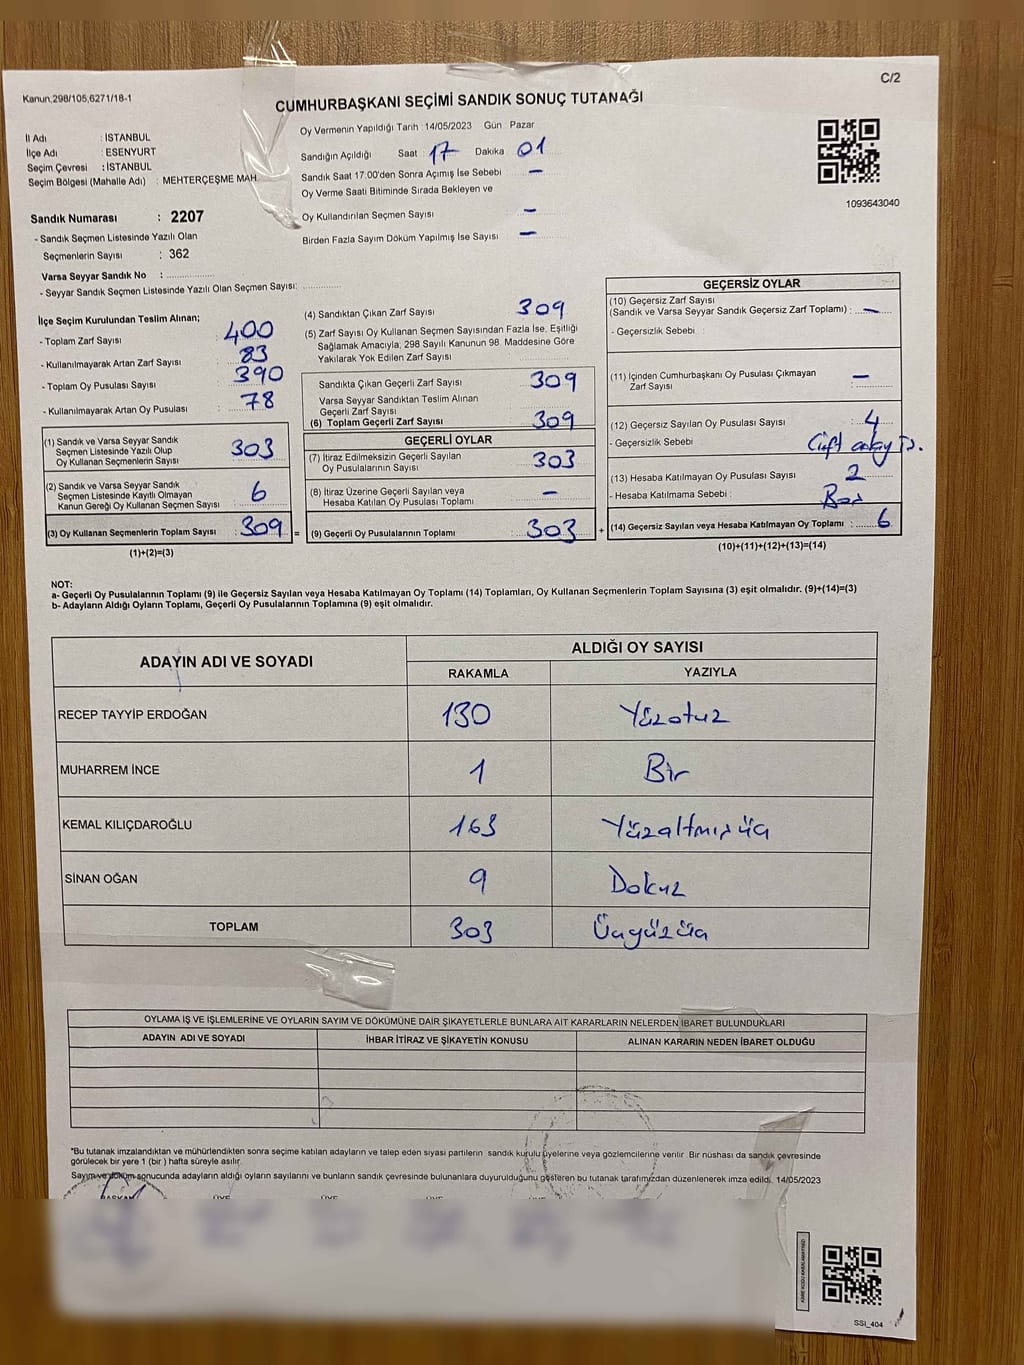 C/2
Kanun,298/105,6271/18-1
CUMHURBAŞKANI SEÇİMİ SANDIK SONUÇ TUTANAĞI
İl Adı : İSTANBUL
İlçe Adı : ESENYURT
Seçim Çevresi : İSTANBUL
Seçim Bölgesi (Mahalle Adı) : MEHTERÇEŞME MAH.
Oy Vermenin Yapıldığı Tarih : 14/05/2023 Gün : Pazar
Sandığın Açıldığı Saat 17 Dakika 01
Sandık Saat 17:00'den Sonra Açımış İse Sebebi –
Oy Verme Saati Bitiminde Sırada Bekleyen ve
Oy Kullandırılan Seçmen Sayısı –
Birden Fazla Sayım Döküm Yapılmış İse Sayısı –
1093643040
Sandık Numarası : 2207
- Sandık Seçmen Listesinde Yazılı Olan
Seçmenlerin Sayısı : 362
Varsa Seyyar Sandık No :
- Seyyar Sandık Seçmen Listesinde Yazılı Olan Seçmen Sayısı:
İlçe Seçim Kurulundan Teslim Alınan;
- Toplam Zarf Sayısı : 400
- Kullanılmayarak Artan Zarf Sayısı : 83
- Toplam Oy Pusulası Sayısı : 390
- Kullanılmayarak Artan Oy Pusulası : 78
(1) Sandık ve Varsa Seyyar Sandık
Seçmen Listesinde Yazılı Olup
Oy Kullanan Seçmenlerin Sayısı : 303
(2) Sandık ve Varsa Seyyar Sandık
Seçmen Listesinde Kayıtlı Olmayan
Kanun Gereği Oy Kullanan Seçmen Sayısı : 6
(3) Oy Kullanan Seçmenlerin Toplam Sayısı : 309 =
(1)+(2)=(3)
(4) Sandıktan Çıkan Zarf Sayısı : 309
(5) Zarf Sayısı Oy Kullanan Seçmen Sayısından Fazla İse, Eşitliği
Sağlamak Amacıyla; 298 Sayılı Kanunun 98. Maddesine Göre
Yakılarak Yok Edilen Zarf Sayısı :
Sandıkta Çıkan Geçerli Zarf Sayısı : 309
Varsa Seyyar Sandıktan Teslim Alınan
Geçerli Zarf Sayısı :
(6) Toplam Geçerli Zarf Sayısı : 309
GEÇERLİ OYLAR
(7) İtiraz Edilmeksizin Geçerli Sayılan
Oy Pusulalarının Sayısı : 303
(8) İtiraz Üzerine Geçerli Sayılan veya
Hesaba Katılan Oy Pusulası Toplamı : –
(9) Geçerli Oy Pusulalarının Toplamı : 303 +
GEÇERSİZ OYLAR
(10) Geçersiz Zarf Sayısı
(Sandık ve Varsa Seyyar Sandık Geçersiz Zarf Toplamı) : –
- Geçersizlik Sebebi :
(11) İçinden Cumhurbaşkanı Oy Pusulası Çıkmayan
Zarf Sayısı : –
(12) Geçersiz Sayılan Oy Pusulası Sayısı : 4
- Geçersizlik Sebebi : Çift
(13) Hesaba Katılmayan Oy Pusulası Sayısı : 2
- Hesaba Katılmama Sebebi : Boş
(14) Geçersiz Sayılan veya Hesaba Katılmayan Oy Toplamı : 6
(10)+(11)+(12)+(13)=(14)
NOT:
a- Geçerli Oy Pusulalarının Toplamı (9) ile Geçersiz Sayılan veya Hesaba Katılmayan Oy Toplamı (14) Toplamları, Oy Kullanan Seçmenlerin Toplam Sayısına (3) eşit olmalıdır. (9)+(14)=(3)
b- Adayların Aldığı Oyların Toplamı, Geçerli Oy Pusulalarının Toplamına (9) eşit olmalıdır.
ADAYIN ADI VE SOYADI ALDIĞI OY SAYISI
RAKAMLA YAZIYLA
RECEP TAYYİP ERDOĞAN 130 Yüzotuz
MUHARREM İNCE 1 Bir
KEMAL KILIÇDAROĞLU 163 Yüzaltmışüç
SİNAN OĞAN 9 Dokuz
TOPLAM 303 Üçyüzüç
OYLAMA İŞ VE İŞLEMLERİNE VE OYLARIN SAYIM VE DÖKÜMÜNE DAİR ŞİKAYETLERLE BUNLARA AİT KARARLARIN NELERDEN İBARET BULUNDUKLARI
ADAYIN ADI VE SOYADI İHBAR İTİRAZ VE ŞİKAYETİN KONUSU ALINAN KARARIN NEDEN İBARET OLDUĞU
"Bu tutanak imzalandıktan ve mühürlendikten sonra seçime katılan adayların ve talep eden siyasi partilerin sandık kurulu üyelerine veya gözlemcilerine verilir. Bir nüshası da sandık çevresinde
görülecek bir yere 1 (bir) hafta süreyle asılır.
Sayım ve döküm sonucunda adayların aldığı oyların sayılarını ve bunların sandık çevresinde bulunanlara duyurulduğunu gösteren bu tutanak tarafımızdan düzenlenerek imza edildi. 14/05/2023
BAŞKAN ÜYE ÜYE ÜYE ÜYE ÜYE
SSI_404